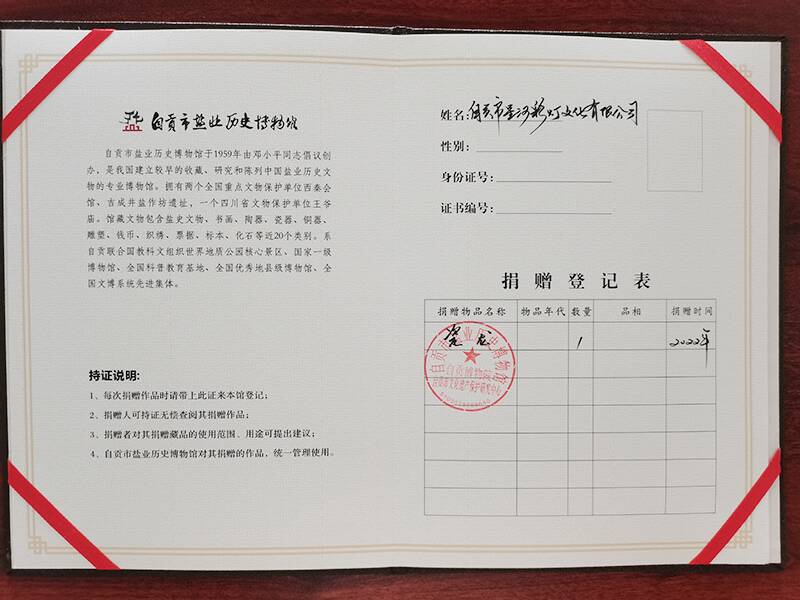 自贡市盐业历史博物馆
自贡市盐业历史博物馆于1959年由邓小平同志倡议创
办，是我国建立较早的收藏、研究和陈列中国盐业历史文
物的专业博物馆。拥有两个全国重点文物保护单位西秦会
馆、吉成井盐作坊遗址，一个四川省文物保护单位王爷
庙。馆藏文物包含盐史文物、书画、陶器、瓷器、铜器、
雕塑、钱币、织绣、票据、标本、化石等近20个类别。系
自贡联合国教科文组织世界地质公园核心景区、国家一级
博物馆、全国科普教育基地、全国优秀地县级博物馆、全
国文博系统先进集体。
持证说明:
1、每次捐赠作品时请带上此证来本馆登记；
2、捐赠人可持证无偿查阅其捐赠作品；
3、捐赠者对其捐赠藏品的使用范围、用途可提出建议；
4、自贡市盐业历史博物馆对其捐赠的作品，统一管理使用。
姓名: 自贡市星河彩灯文化有限公司
性别:
身份证号:
证书编号:
捐赠登记表
捐赠物品名称 物品年代 数量 品相 捐赠时间
瓷龙 1 2022年
自贡市盐业历史博物馆
自贡博物院
自贡市文化遗产保护研究中心